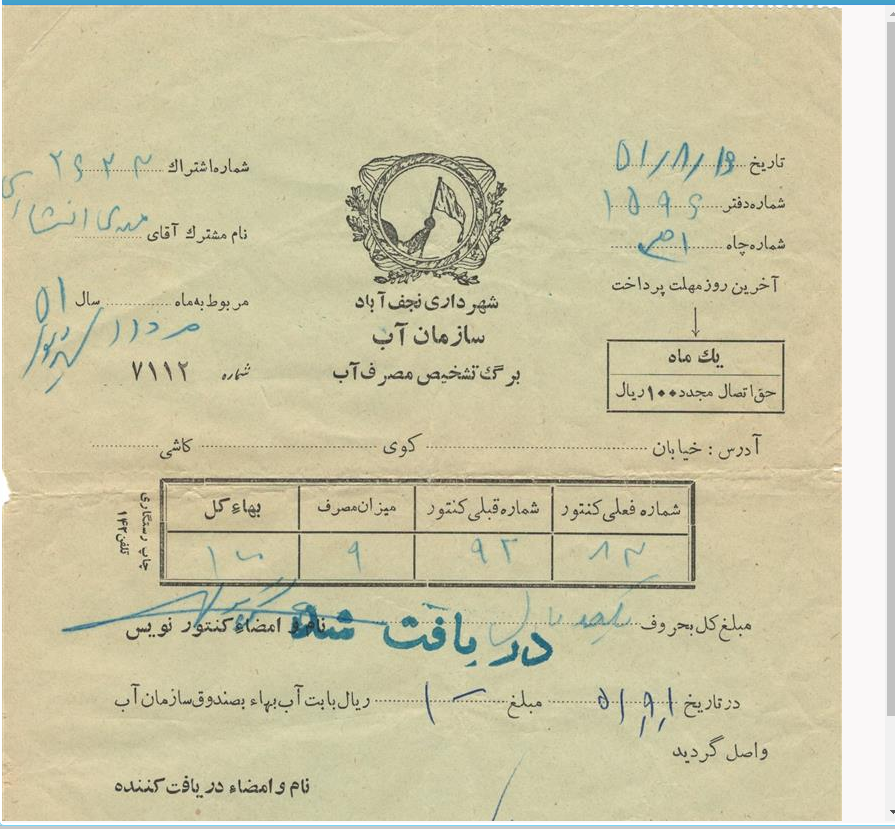 تاریخ ۵۱/۸/۱۶
شماره دفتر ۱۵۹۶
شماره چاه
آخرین روز مهلت پرداخت
یك ماه
حق اتصال مجدد ۱۰۰ ریال
شهرداری نجف آباد
سازمان آب
برگ تشخیص مصرف آب
شماره اشتراك
نام مشترك آقای
مربوط به ماه سال ۵۱
مرداد
شماره ۷۱۱۲
آدرس : خیابان کوی کاشی
شماره فعلی کنتور شماره قبلی کنتور میزان مصرف بهاء کل
۹۲ ۹
چاپ رستگاری
تلفن ۱۴۳
مبلغ کل بحروف یکصد ریال نام و امضاء کنتور نویس
دریافت شد
در تاریخ مبلغ ریال بابت آب بهاء بصندوق سازمان آب
واصل گردید
نام و امضاء دریافت کننده